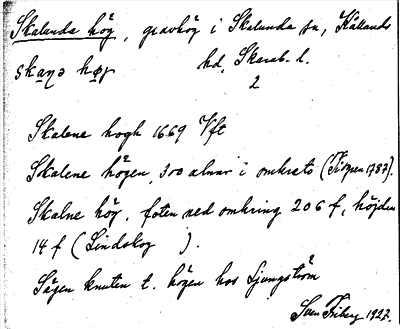 Skalunda hög, gravhög i Skalunda sn, Kållands
hd, Skarab. l.
skaŋə høg
2
Skalene hogh 1669 Vft
Skalene högen, 300 alnar i omkrets (Tidgren 1787).
Skalne hög, foten ned omkring 206 f, höjden
14 f (Lindskog ).
Sägen knuten t. högen hos Ljungström
Sven Friberg 1927.